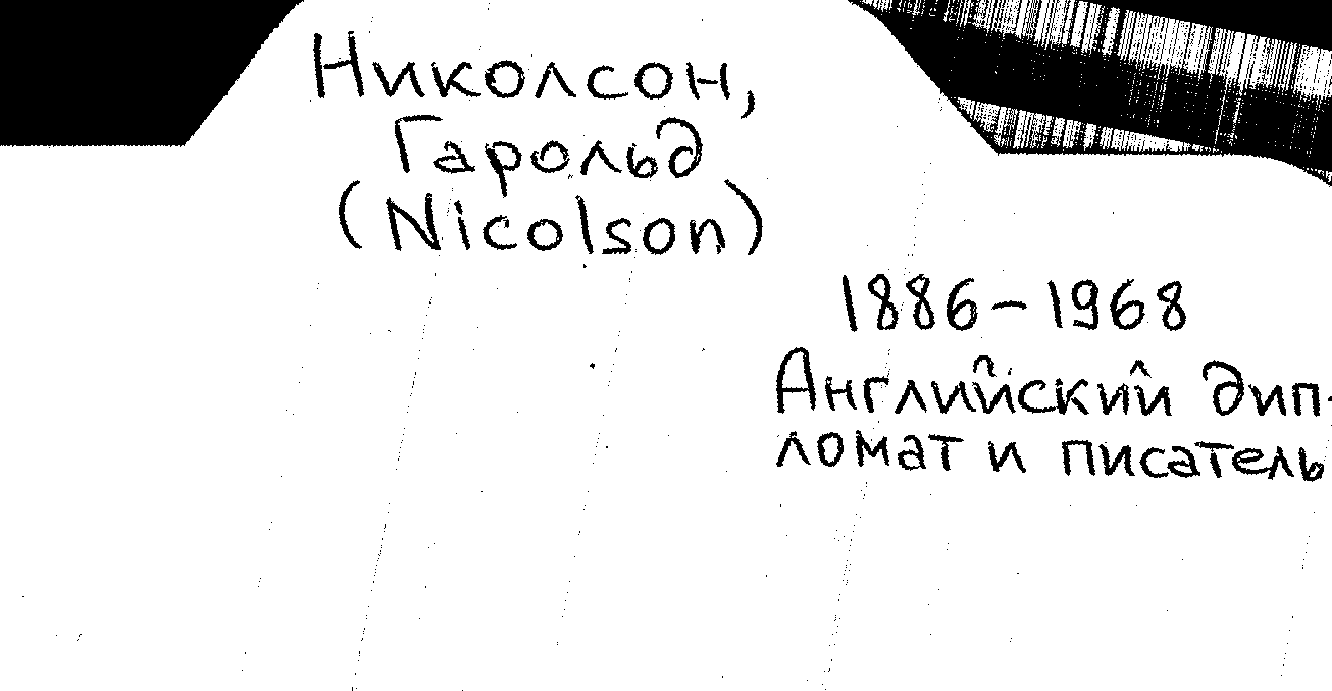 Николсон,
Гарольд
(Nicolson)
1886-1968
Английский дип-
ломат и писатель